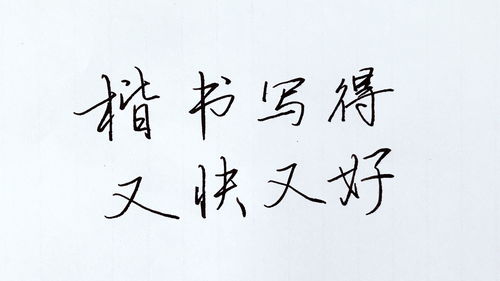 楷书写得
又快又好